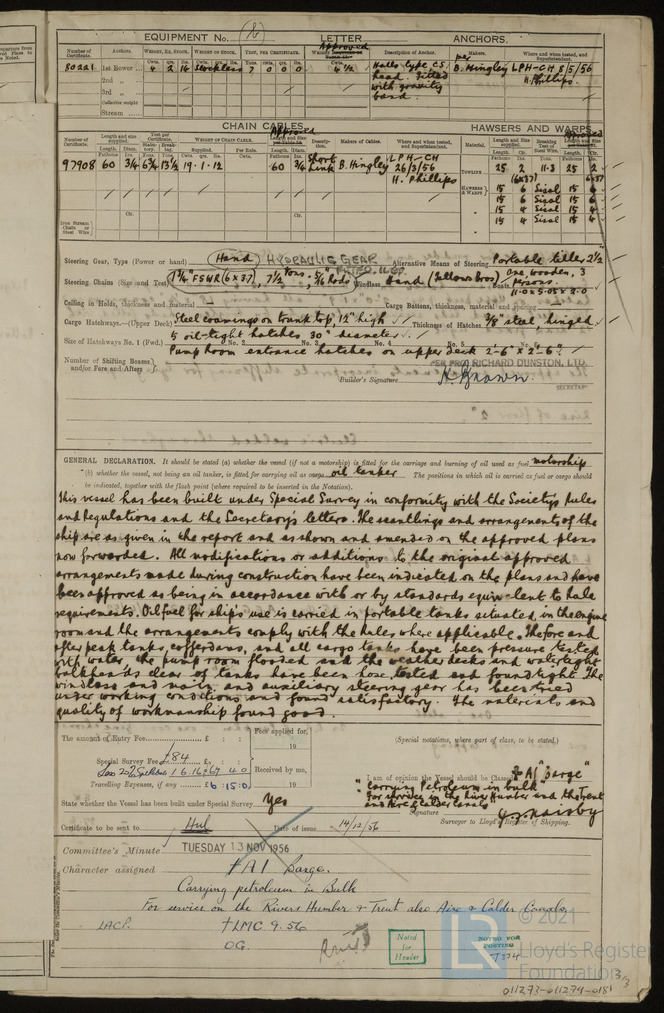 EQUIPMENT No. LETTER ANCHORS.
Number of Certificate. Anchors. WEIGHT, EX. STOCK. WEIGHT OF STOCK. TEST, PER CERTIFICATE. Approved Description of Anchor. Makers. Where and when tested, and Superintendent.
80221 1st Bower 4 2 14 Stockless 7 0 0 0 4½ Halls type C.S. head. Fitted with gravity band. B. Hingley LPH-CH 8/5/56 H. Phillips
2nd "
3rd "
Collective weight
Stream
CHAIN CABLES. HAWSERS AND WARPS.
Number of Certificate. Length and size supplied. Test per Certificate. WEIGHT OF CHAIN CABLE. Approved Description. Makers of Cables. Where and when tested, and Superintendent. Material.
97908 60 3/4 6¾ 13½ 19.1.12 60 3/4 Short link B. Hingley LPH-CH 26/3/56 H. Phillips
TOWLINE 25 2 11.3 25 2
(6x37) 6x37
HAWSERS & WARPS 15 6 Sisal 15 6
15 6 Sisal 15 6
15 4 Sisal 15 4
15 4 Sisal 15 4
Iron Stream Chain or Steel Wire
Steering Gear, Type (Power or hand) Hand HYDRAULIC GEAR Alternative Means of Steering Portable tiller 2½"
Steering Chains (Size and Test) 1¼" FSWR (6x37), 7½ Tons - 5/16 Rods Windlass Hand (Fellows Bros) Boats One, wooden, 3 persons.
11.0 x 5.05 x 2.0
Ceiling in Holds, thickness and material — Cargo Battens, thickness, material and spacing —
Cargo Hatchways.—(Upper Deck) Steel coamings on trunk top, 12" high Thickness of Hatches 3/8" steel, hinged
Size of Hatchways No. 1 (Fwd.) 5 oil-tight hatches 30" diameter No. 2 No. 3 No. 4 No. 5
Pump room entrance hatches on upper deck 2'-6" x 2'-6"
Number of Shifting Beams and/or Fore and Afters
PER PRO RICHARD DUNSTON, LTD.
Builder's Signature H. Brown.
SECRETARY
GENERAL DECLARATION. It should be stated (a) whether the vessel (if not a motorship) is fitted for the carriage and burning of oil used as fuel motorship
(b) whether the vessel, not being an oil tanker, is fitted for carrying oil as cargo oil tanker The positions in which oil is carried as fuel or cargo should
be indicated, together with the flash point (where required to be inserted in the Notation).
This vessel has been built under Special Survey in conformity with the Society's Rules
and Regulations and the Secretary's letters. The scantlings and arrangements of the
ship are as given in the report and as shown and amended on the approved plans
now forwarded. All modifications or additions to the original approved
arrangements made during construction have been indicated on the plans and have
been approved as being in accordance with or by standards equivalent to Rule
requirements. Oil fuel for ship's use is carried in portable tanks situated in the engine
room and the arrangements comply with the Rules where applicable. The fore and
after peak tanks, cofferdams, and all cargo tanks have been pressure tested
with water, the pump room flooded and the weather decks and watertight
bulkheads clear of tanks have been hose tested and found tight. The
windlass and main, and auxiliary steering gear has been tried
under working conditions and found satisfactory. The materials and
quality of workmanship found good.
The amount of Entry Fee £ : : Fees applied for, 19
Special Survey Fee £84
Received by me, 19
Travelling Expenses, if any £ 6 : 15.0
State whether the Vessel has been built under Special Survey Yes
(Special notations, where part of class, to be stated.)
I am of opinion the Vessel should be Classed ✠ A1 "barge"
"carrying Petroleum in bulk"
for service in the River Humber and the Trent
and Aire & Calder canals
Signature
Surveyor to Lloyd's Register of Shipping.
Certificate to be sent to Hul Date of issue 14/12/56
Committee's Minute TUESDAY 13 NOV 1956
Character assigned ✠ A1 Barge.
Carrying petroleum in Bulk
For service on the Rivers Humber & Trent also Aire & Calder Canals,
LACP. ✠ LMC 9.56
OG.
Noted for Header
NOTED FOR POSTING
© 2021
Lloyd's Register
Foundation
LR
3/3
011273-011274-0181